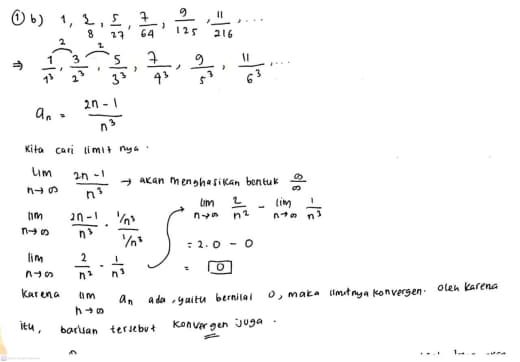 ① b) 1, 3/8, 5/27, 7/64, 9/125, 11/216, ...
2 2
⇒ 1/1³, 3/2³, 5/3³, 7/4³, 9/5³, 11/6³, ...
aₙ = 2n - 1 / n³
Kita cari limit nya.
Lim n→∞ 2n - 1 / n³ → akan menghasilkan bentuk ∞/∞
lim n→∞ 2n - 1 / n³ · 1/n³ / 1/n³
lim n→∞ 2/n² - 1/n³
lim n→∞ 2/n² - lim n→∞ 1/n³
= 2.0 - 0
= 0
Karena lim n→∞ aₙ ada, yaitu bernilai 0, maka limitnya konvergen. Oleh karena
itu, barisan tersebut konvergen juga.